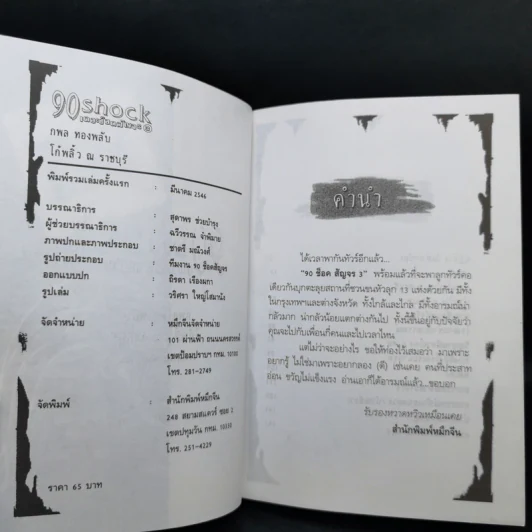 90 shock
กพล ทองพลับ
โก๋พลิ้ว ณ ราชบุรี
พิมพ์รวมเล่มครั้งแรก : มีนาคม 2546
บรรณาธิการ : สุดาพร ช่วยบำรุง
ผู้ช่วยบรรณาธิการ : ฉวีวรรณ จำพิมาย
ภาพปกและภาพประกอบ : ชาตรี มณีวงศ์
รูปถ่ายประกอบ : ทีมงาน 90 ช็อคสัญจร
ออกแบบปก : ธิรดา เรืองผกา
รูปเล่ม : วริศรา ใหญ่โสมานัง
จัดจำหน่าย : หมึกจีนจัดจำหน่าย
101 ผ่านฟ้า ถนนนครสวรรค์
เขตป้อมปราบฯ กทม. 10100
โทร. 281-2749
จัดพิมพ์ : สำนักพิมพ์หมึกจีน
248 สยามสแควร์ ซอย 2
เขตปทุมวัน กทม. 10330
โทร. 251-4229
ราคา 65 บาท
คำนำ
ได้เวลาพากันทัวร์อีกแล้ว...
"90 ช็อค สัญจร 3" พร้อมแล้วที่จะพาลูกทัวร์คอ
เดียวกันบุกตะลุยสถานที่ชวนขนหัวลุก 13 แห่งด้วยกัน มีทั้ง
ในกรุงเทพฯและต่างจังหวัด ทั้งใกล้และไกล มีทั้งอารมณ์น่า
กลัวมาก น่ากลัวน้อยแตกต่างกันไป ทั้งนี้ขึ้นอยู่กับปัจจัยว่า
คุณจะไปกับเพื่อนกี่คนและไปเวลาไหน
แต่ไม่ว่าจะอย่างไร ขอให้ท่องไว้เสมอว่า มาเพราะ
อยากรู้ ไม่ใช่มาเพราะอยากลอง (ดี) เช่นเคย คนที่ประสาท
อ่อน ขวัญไม่แข็งแรง อ่านเอาก็ได้อารมณ์แล้ว...ขอบอก
รับรองหวาดหวิวเหมือนเคย
สำนักพิมพ์หมึกจีน